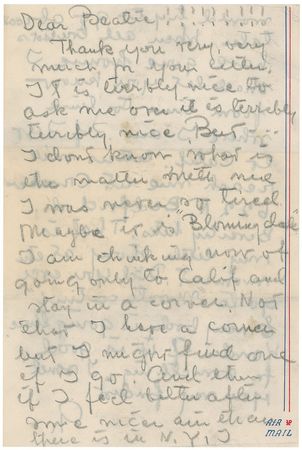 Dear Beatie!!!!!!!!!!
Thank you very, very
much for your letter.
It is terribly nice to
ask me over it is terribly
terribly nice, But ...
I dont know what is
the matter with me
I was never so tired
Maybe its "Blomingdale
I am thinking now of
going only to Calif and
stay in a corner. Not
that I have a corner
but I might find one
if I go. And then
if I feel better after
some nicer air than
there is in N.Y. I
AIR MAIL